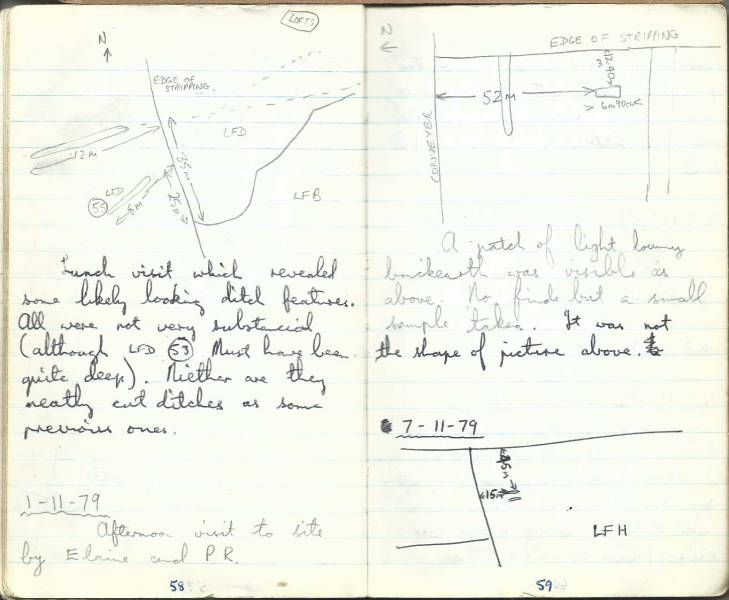 LOFTS
N
EDGE OF
STRIPPING.
LFD
12 M
35 M
25 M
LFD
55
8 M
LFB
Lunch visit which revealed
some likely looking ditch features.
All were not very substancial
(although LFD 53 Must have been
quite deep). Niether are they
neatly cut ditches as some
previous ones.
1-11-79
Afternoon visit to site
by Elaine and P.R.
58
N
EDGE OF STRIPPING
12.90
M
52 M
6m90cm
CONVEYER
A patch of light loamy
brickearth was visible as
above. No finds but a small
sample taken. It was not
the shape of picture above.
7-11-79
15
LFH
59